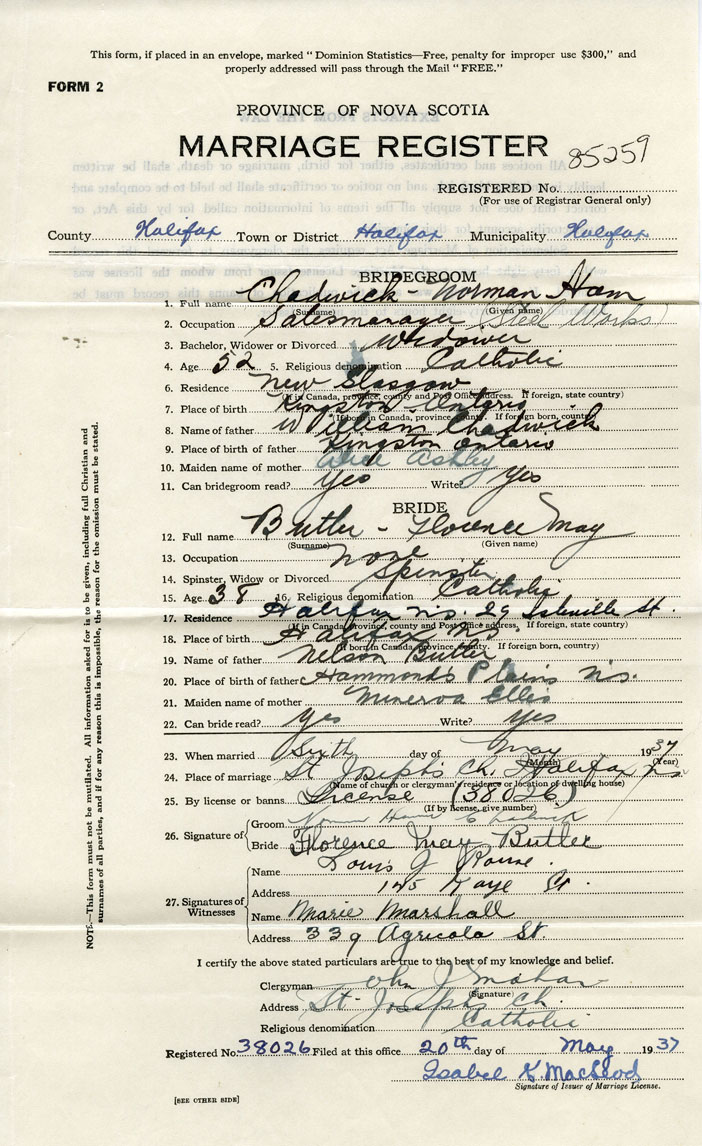 This form, if placed in an envelope, marked "Dominion Statistics—Free, penalty for improper use $300," and
properly addressed will pass through the Mail "FREE."
FORM 2
PROVINCE OF NOVA SCOTIA
MARRIAGE REGISTER
85259
REGISTERED No.
(For use of Registrar General only)
County Halifax Town or District Halifax Municipality Halifax
BRIDEGROOM
1. Full name Chadwick - Norman Ham
(Surname) (Given name)
2. Occupation Salesmanager (Steel Works)
3. Bachelor, Widower or Divorced Widower
4. Age 52 5. Religious denomination Catholic
6. Residence New Glasgow
(If in Canada, province, county and Post Office address. If foreign, state country)
7. Place of birth Kingston Ontario
(If born in Canada, province, county. If foreign born, country)
8. Name of father William Chadwick
9. Place of birth of father Kingston Ontario
10. Maiden name of mother Alice Ashley
11. Can bridegroom read? Yes Write? Yes
BRIDE
12. Full name Butler - Florence May
(Surname) (Given name)
13. Occupation None
14. Spinster, Widow or Divorced Spinster
15. Age 38 16. Religious denomination Catholic
17. Residence Halifax N.S. 29 St.
(If in Canada, province, county and Post Office address. If foreign, state country)
18. Place of birth Halifax N.S.
(If born in Canada, province, county. If foreign born, country)
19. Name of father Nelson Butler
20. Place of birth of father Hammonds Plains N.S.
21. Maiden name of mother Minerva Ellis
22. Can bride read? Yes Write? Yes
23. When married Sixth day of May 1937
(Month) (Year)
24. Place of marriage St Joseph's Ch. Halifax N.S.
(Name of church or clergyman's residence or location of dwelling house)
25. By license or banns License (38026)
(If by license, give number)
26. Signature of
Groom Chadwick
Bride Florence May Butler
27. Signatures of Witnesses
Name Louis J Rouse.
Address 145 Kaye St.
Name Marie Marshall
Address 339 Agricola St.
I certify the above stated particulars are true to the best of my knowledge and belief.
Clergyman John J Mahar
(Signature)
Address St. Joseph's Ch.
Religious denomination Catholic
Registered No. 38026 Filed at this office 20th day of May 1937
Isabel G. MacLeod
Signature of Issuer of Marriage License.
[SEE OTHER SIDE]
NOTE.—This form must not be mutilated. All information asked for is to be given, including full Christian and
surnames of all parties, and if for any reason this is impossible, the reason for the omission must be stated.